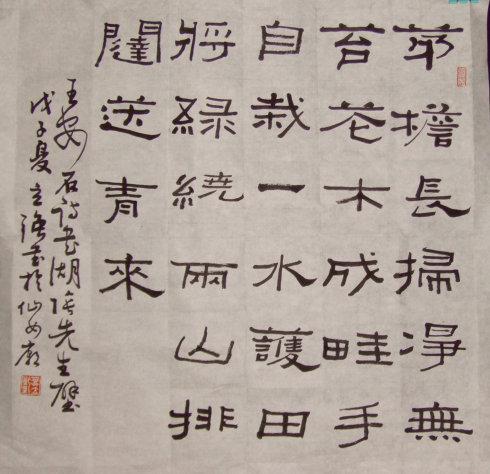 茅檐長掃淨無
苔花木成畦手
自栽一水護田
將綠繞兩山排
闥送青來
王安石詩書湖陰先生壁
戊子夏立強書於仙女廟